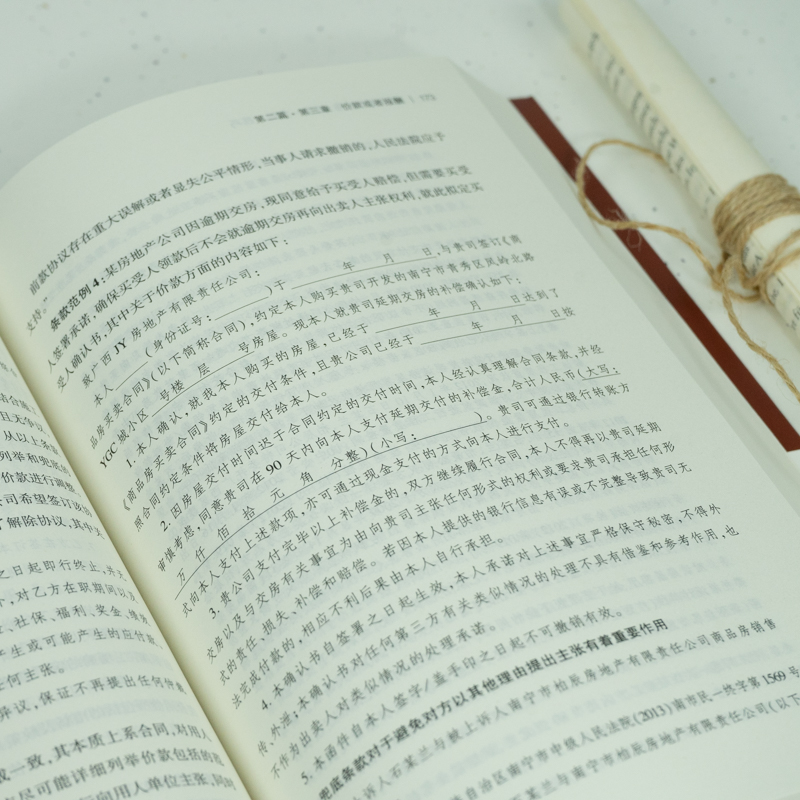 结合商
且无争议
从以上条款
列举和兜底的
价款进行调整
公司希望签订该协
了解除协议,其中关
之日起即行终止,并
,对乙方在职期间以及
、社保、福利、奖金、
产生或可能产生的应付款
任何主张。
异议,保证不再提出任何
成一致,其本质上系合同,对用人
尽可能详细列举价款包括的
向用人单位主张,同时
第二篇·第三章 价款或者报酬
前款协议存在重大误解或者显失公平情形,当事人请求撤销的,人民法院应予
支持。”
条款范例4:某房地产公司因逾期交房,现同意给予买受人赔偿,但需要买受
人签署承诺,确保买受人领款后不会就逾期交房再向出卖人主张权利,就此拟定买
受人确认书,其中关于价款方面的内容如下:
致广西JY房地产有限责任公司:
本人____(身份证号:____)于____年__月__日,与贵司签订《商
品房买卖合同》(以下简称合同),约定本人购买贵司开发的南宁市青秀区凤岭北路
YGC城小区__号楼__层__号房屋。现本人就贵司延期交房的补偿确认如下:
1. 本人确认,就我本人购买的房屋,已经于____年__月__日达到了
《商品房买卖合同》约定的交付条件,且贵公司已经于____年__月__日按
照合同约定条件将房屋交付给本人。
2. 因房屋交付时间迟于合同约定的交付时间,本人经认真理解合同条款,并经
审慎考虑,同意贵司在90天内向本人支付延期交付的补偿金,合计人民币(大写:
万 仟 佰 拾 元 角 分整)(小写:____)。贵司可通过银行转账方
式向本人支付上述款项,亦可通过现金支付的方式向本人进行支付。
3. 贵公司支付完毕以上补偿金的,双方继续履行合同,本人不得再以贵司延期
交房以及与交房有关事宜为由向贵司主张任何形式的权利或要求贵司承担任何形
式的责任、损失、补偿和赔偿。若因本人提供的银行信息有误或不完整导致贵司无
法完成付款的,相应不利后果由本人自行承担。
4. 本确认书自签署之日起生效,本人承诺对上述事宜严格保守秘密,不得外
传、外泄;本确认书对任何第三方有关类似情况的处理不具有借鉴和参考作用,也
不作为出卖人对类似情况的处理承诺。
5. 本函件自本人签字/盖手印之日起不可撤销有效。
兜底条款对于避免对方以其他理由提出主张有着重要作用
诉人石某兰与被上诉人南宁市柏辰房地产有限责任公司商品房销售
自治区南宁市中级人民法院(2013)南市民一终字第1569号
某兰与南宁市柏辰房地产有限责任公司(以下